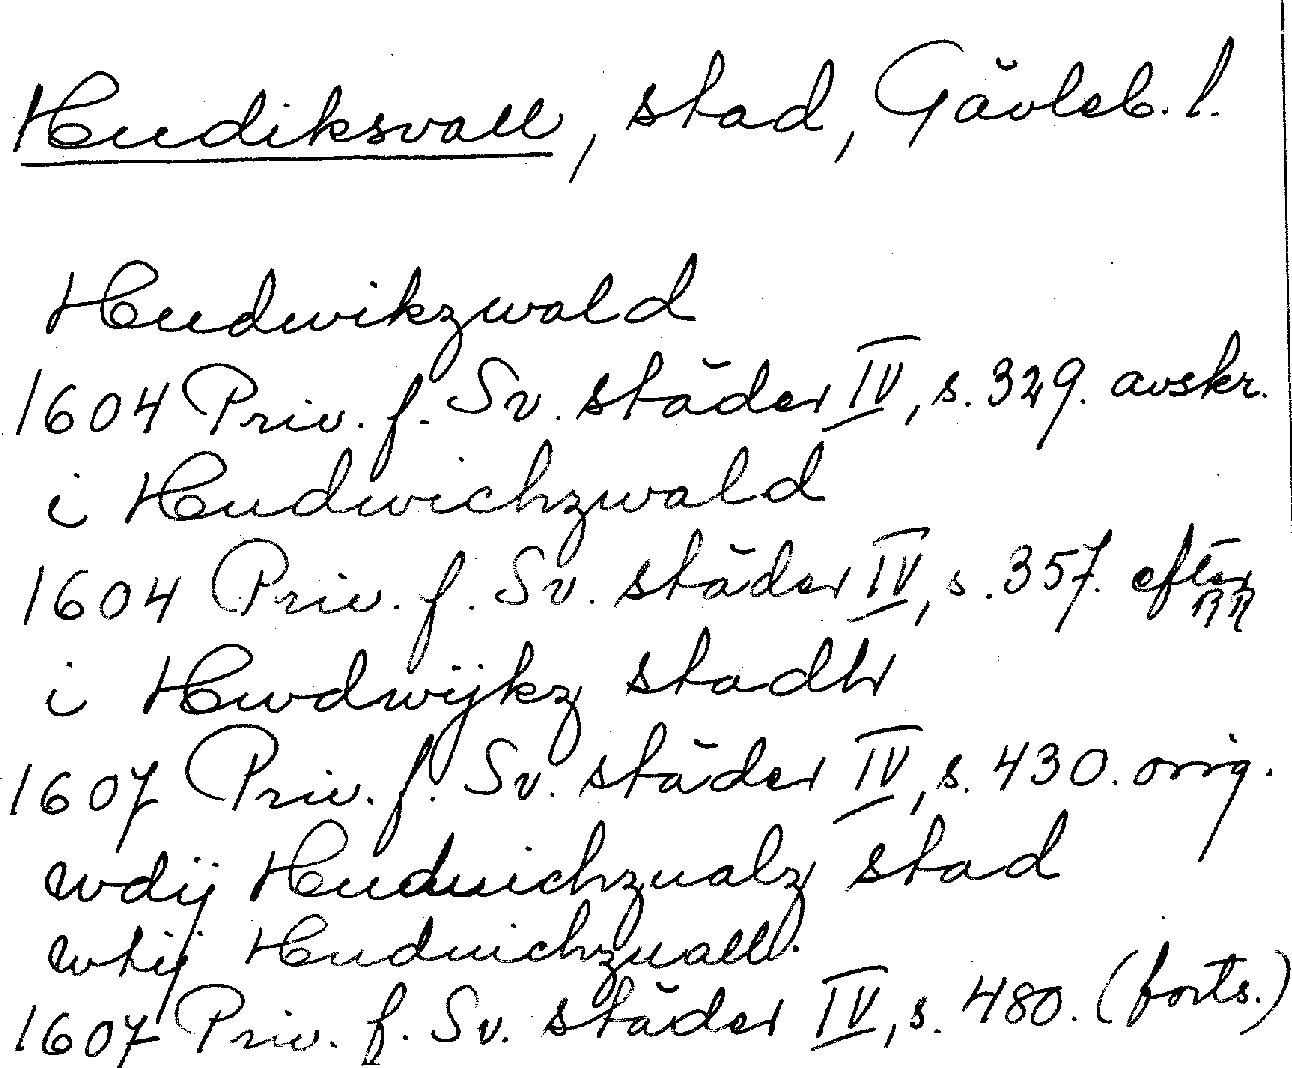 Hudiksvall, stad, Gävleb. l.
Hudwikzwald
1604 Priv. f. Sv. städer IV, s. 329. avskr.
i Hudwichzwald
1604 Priv. f. Sv. städer IV, s. 357. efter
RR
i Hwdwijkz stadh
1607 Priv. f. Sv. städer IV, s. 430. orig.
wdij Huduichzualz stad
wtij Huduichzuall.
1607 Priv. f. Sv. städer IV, s. 480. (forts.)